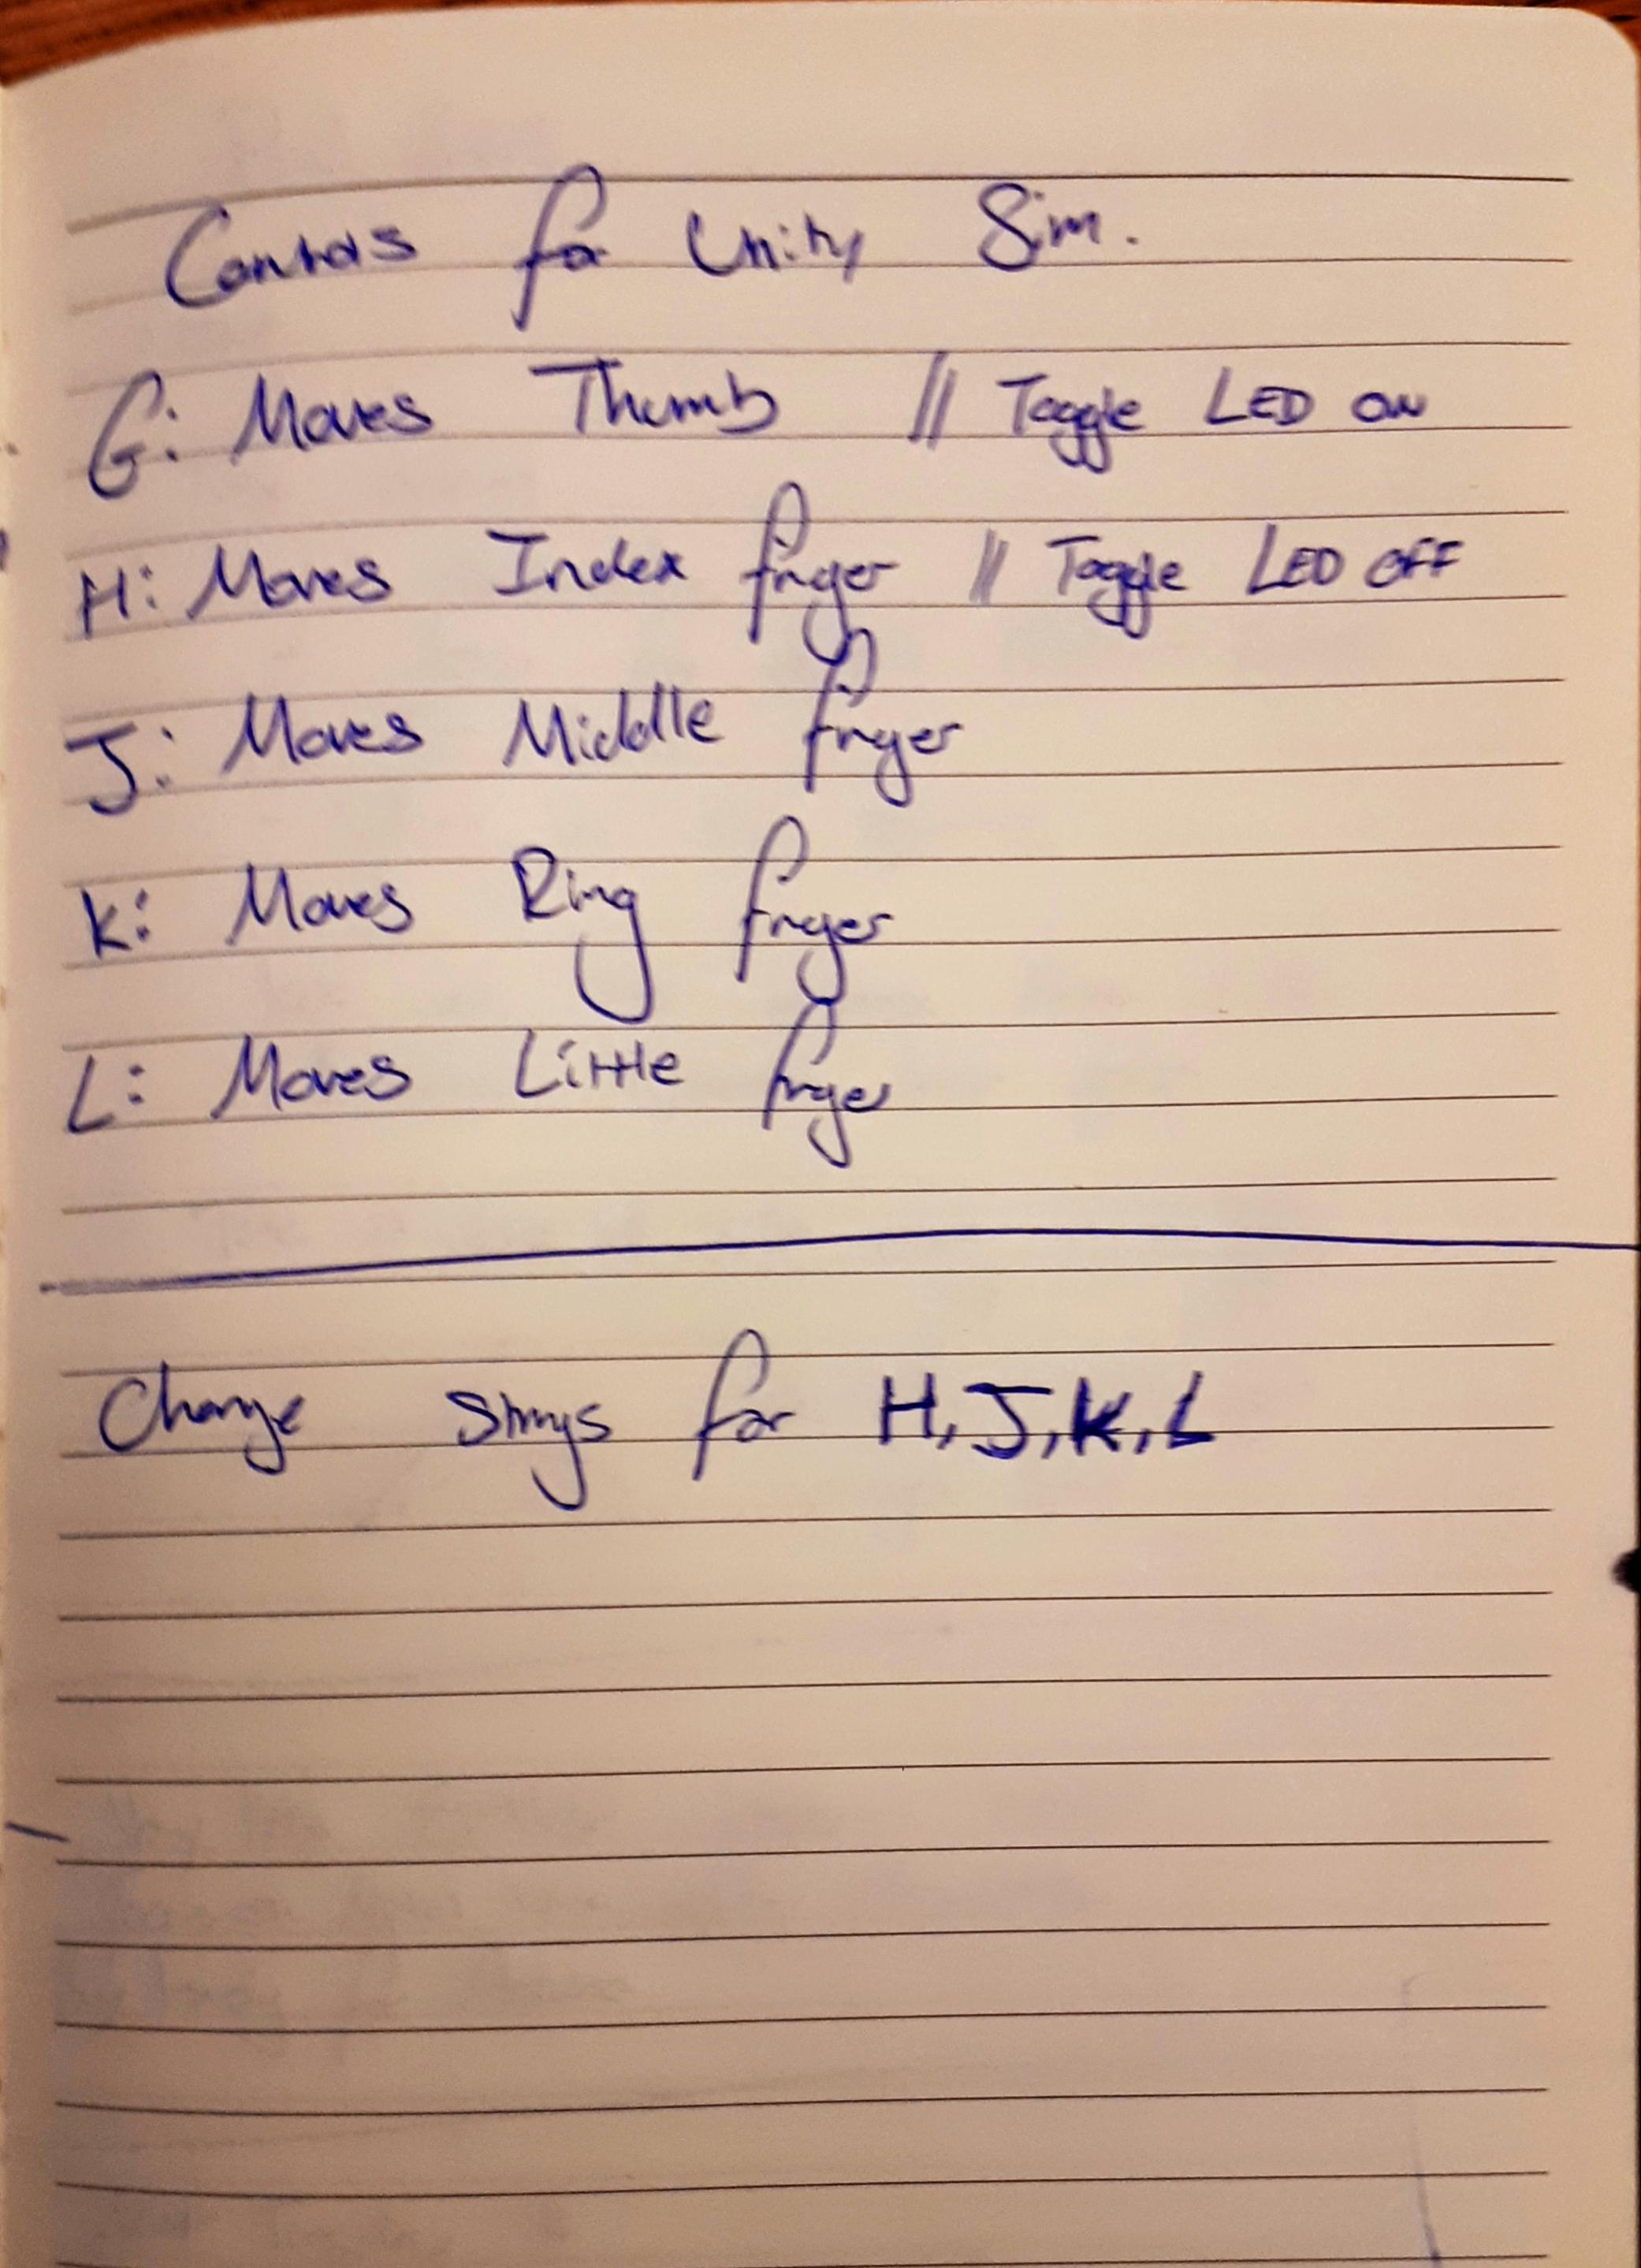 Controls for Unity Sim.
G: Moves Thumb // Toggle LED ON
H: Moves Index finger // Toggle LED OFF
J: Moves Middle finger
K: Moves Ring finger
L: Moves Little finger
Change strings for H, J, K, L